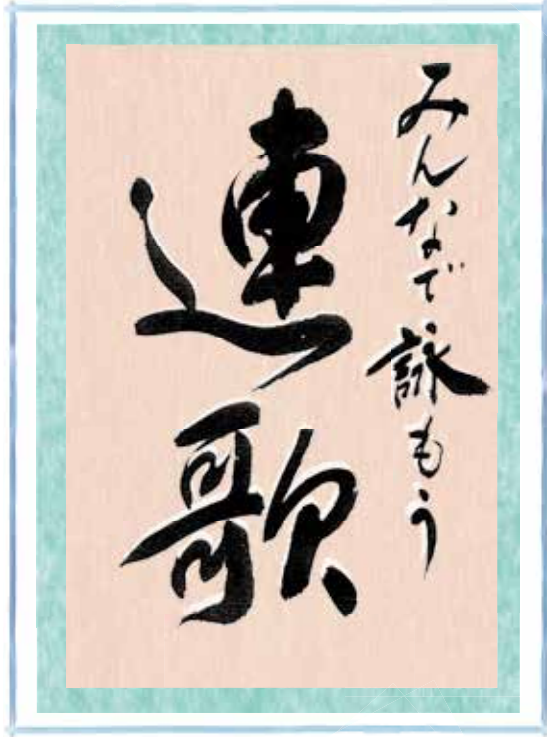 みんなで詠もう
連歌